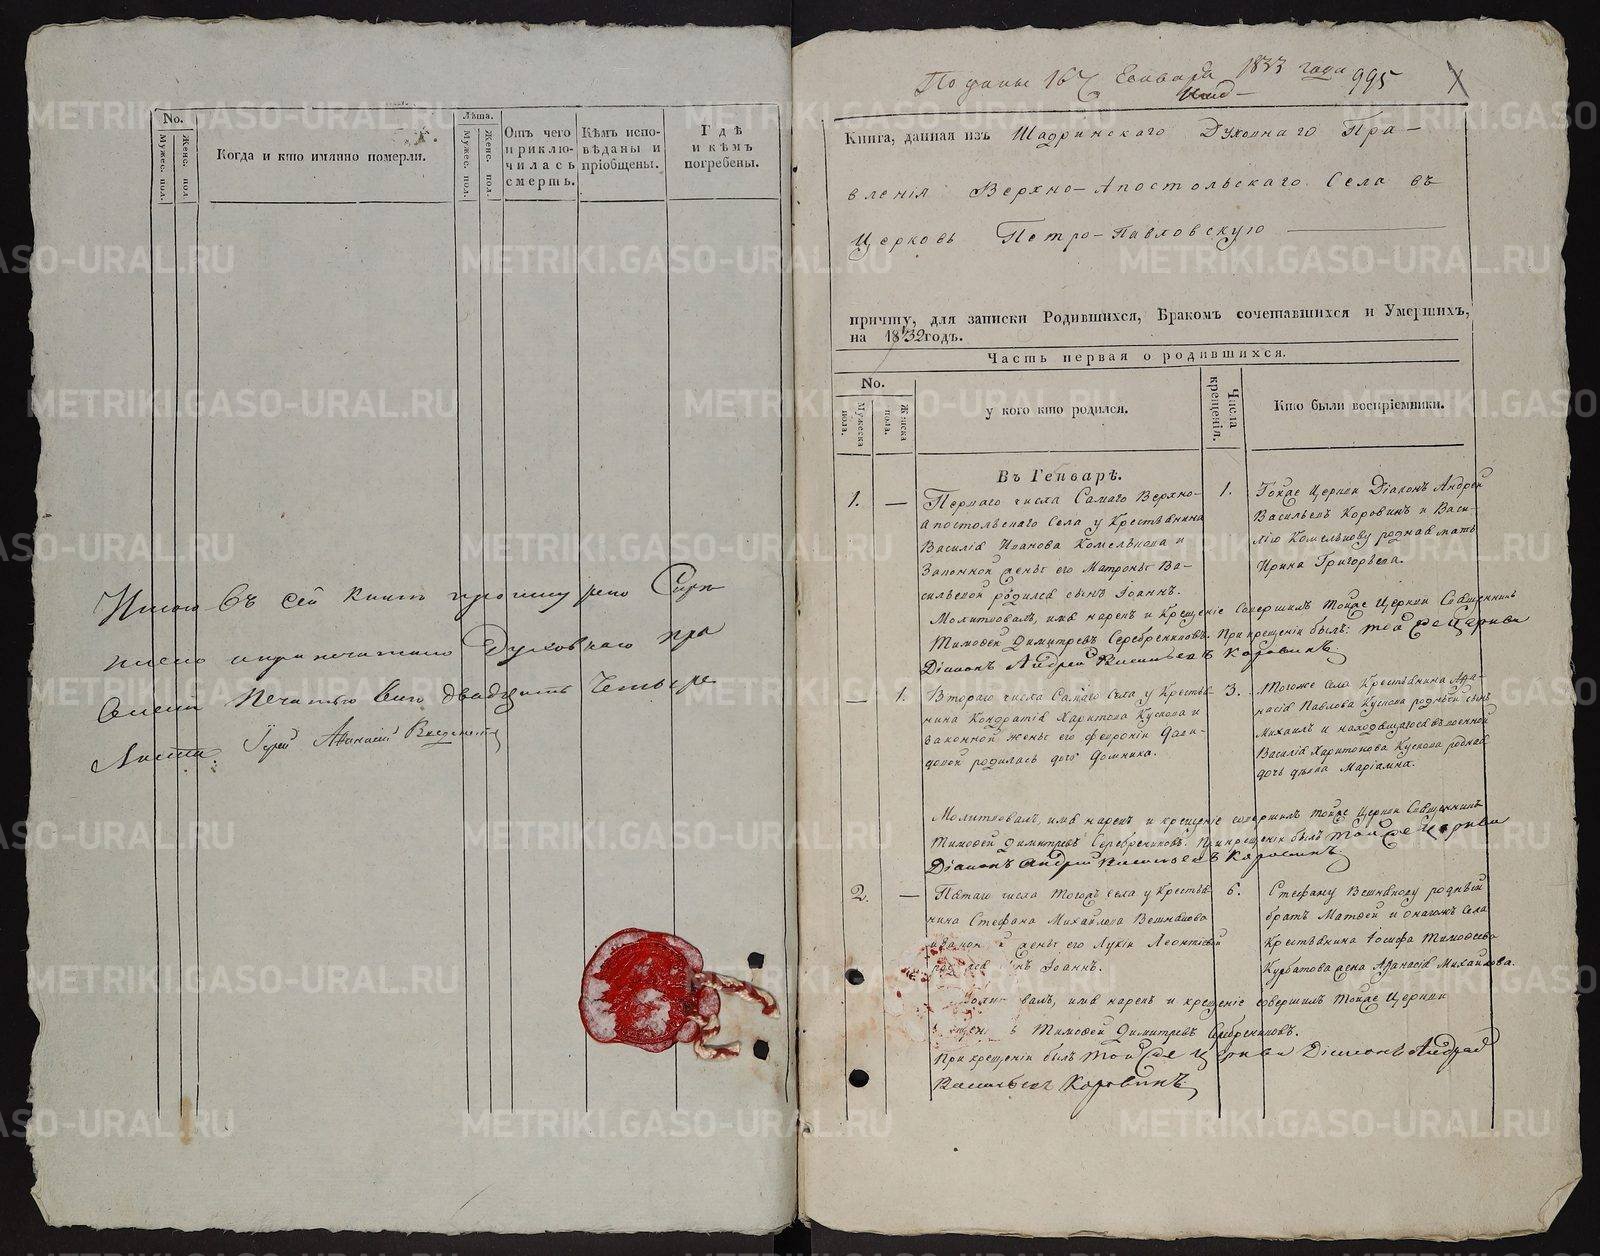 No.
Мужес. пол.
Женс. пол
Когда и кто имянно померли.
Лѣта.
Мужес. пол.
Женс. пол.
Отъ чего
приклю-
чилась
смерть.
Кѣмъ испо-
вѣданы и
пріобщены.
Гдѣ
и кѣмъ
погребены.
Итого въ сей книгѣ прошнуре
и припечатано Духовнаго пра
вленія печатью двадцать четыре
Листа. Іерей Афанасій
Поданы 16 Генваря 1833 года 995
Книга, данная изъ Шадринскаго Духовнаго Пра-
вленія Верхно-Апостольскаго Села въ
Церковь Петро-Павловскую
причту, для записки Родившихся, Бракомъ сочетавшихся и Умершихъ,
на 1832 годъ.
Часть первая о родившихся.
No.
Мужеска
пола.
Женска
пола.
у кого кто родился.
Числа
крещенія.
Кто были воспріемники.
Въ Генварѣ.
1. — Перваго числа Самаго Верхно-
апостольскаго Села у Крестьянина
Василія Иванова Комельнова и
Законной жены его Матроны Ва-
сильевой родился сынъ Іоаннъ.
1. Тойже Церкви Діаконъ Андрей
Васильевъ Коровинъ и Васи-
лію Комельнову родная мать
Ирина Григорьева.
Молитвовалъ, имя нарекъ и Крещеніе совершилъ тойже Церкви Священникъ
Тимофей Димитревъ Серебренниковъ. При крещеніи былъ: той же Церкви
Діаконъ Андрей Васильевъ Коровинъ
— 1. Втораго числа Самаго Села у Крестья-
нина Кондратія Харитова Кускова и
законной жены его Февроніи
родилась дочь Домника.
3. Тогоже Села Крестьянина Афа-
насія Павлова Кускова родный сынъ
Михаилъ и находящагося въ военной
Василія Харитонова Кускова родная
дочь дѣвка Маріамна.
Молитвовалъ, имя нарекъ и крещеніе совершилъ тойже Церкви Священникъ
Тимофей Димитревъ Серебренниковъ. При крещеніи былъ той же Церкви
Діаконъ Андрей Васильевъ Коровинъ.
2. — Пятаго числа тогожъ села у Крестья-
нина Стефана Михайлова Вешнякова
и законной жены его Лукіи Леонтіевой
родился сынъ Іоаннъ.
6. Стефану Вешнякову родный
братъ Матфей и онагожъ Села
Крестьянина Іосифа Тимофеева
Курбатова жена Афанасія Михайлова.
Молитвовалъ, имя нарекъ и крещеніе совершилъ тойже Церкви
Священникъ Тимофей Димитревъ Серебренниковъ.
При крещеніи былъ той же Церкви Діаконъ Андрей
Васильевъ Коровинъ.
METRIKI.GASO-URAL.RU